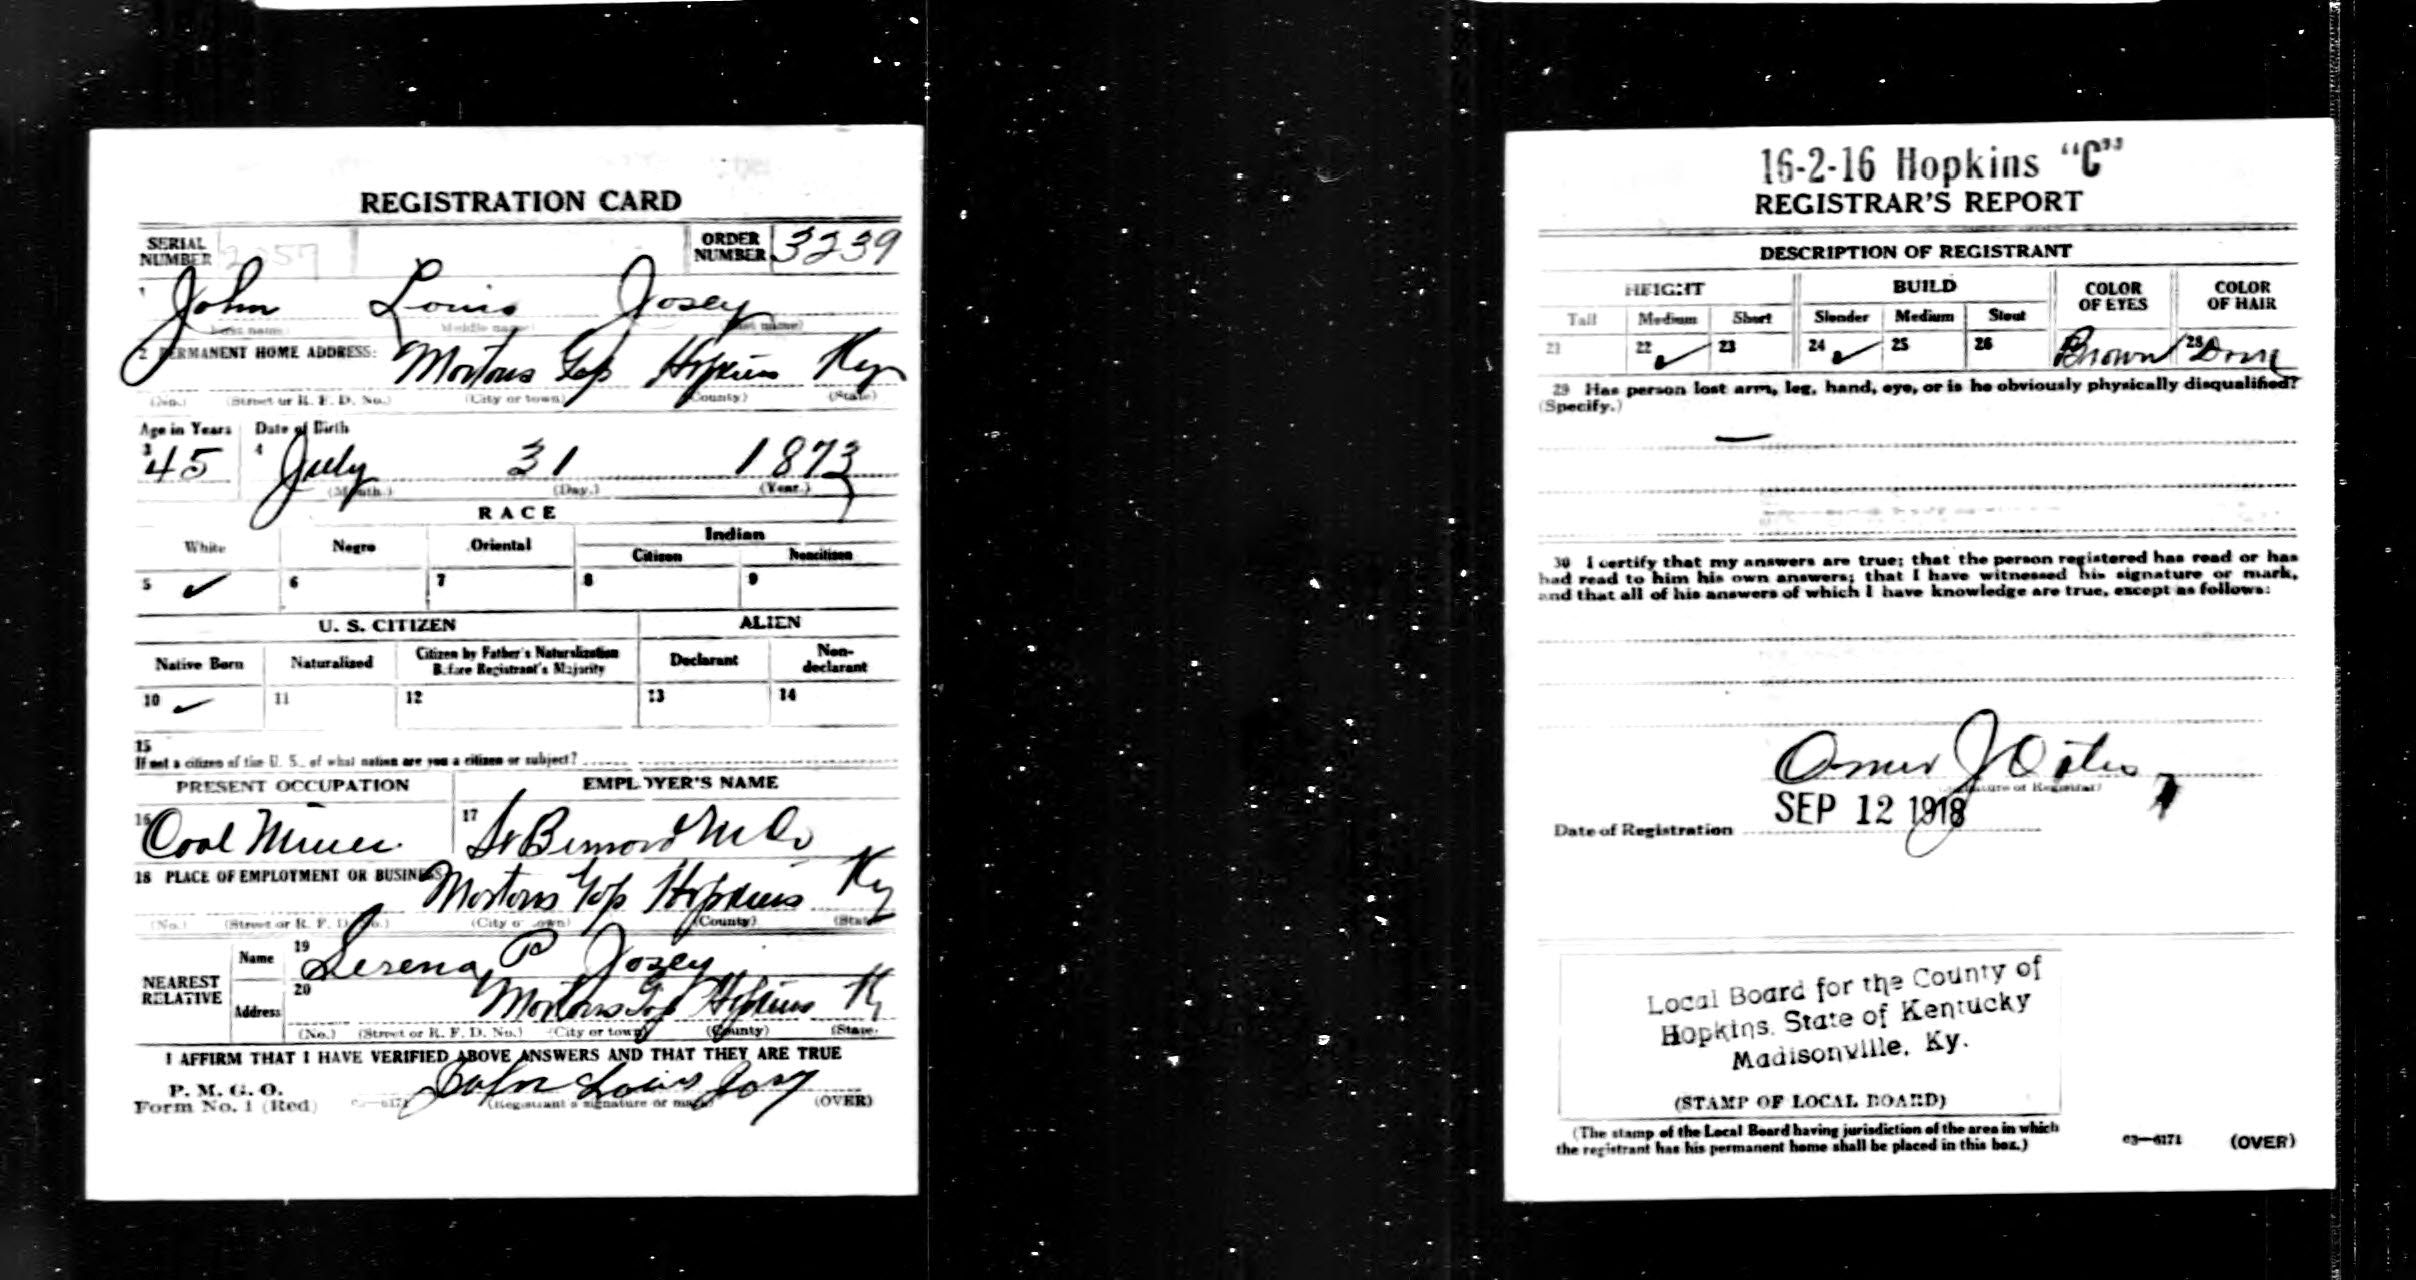 REGISTRATION CARD
SERIAL NUMBER 2257 ORDER NUMBER 3239
1 John Louis Josey
(First name) (Middle name) (Last name)
2 PERMANENT HOME ADDRESS: Mortons Gap Hopkins Ky
(No.) (Street or R. F. D. No.) (City or town) (County) (State)
Age in Years Date of Birth
3 45 4 July 31 1873
(Month.) (Day.) (Year.)
RACE
White Negro Oriental Indian
Citizen Noncitizen
5 ✓ 6 7 8 9
U. S. CITIZEN ALIEN
Native Born Naturalized Citizen by Father's Naturalization Before Registrant's Majority Declarant Non-declarant
10 ✓ 11 12 13 14
15
If not a citizen of the U. S., of what nation are you a citizen or subject?
PRESENT OCCUPATION EMPLOYER'S NAME
16 Coal Miner 17 St Bernard M Co
18 PLACE OF EMPLOYMENT OR BUSINESS Mortons Gap Hopkins Ky
(No.) (Street or R. F. D. No.) (City or town) (County) (State)
NEAREST RELATIVE Name 19 Serena P Josey
Address 20 Mortons Gap Hopkins Ky
(No.) (Street or R. F. D. No.) (City or town) (County) (State)
I AFFIRM THAT I HAVE VERIFIED ABOVE ANSWERS AND THAT THEY ARE TRUE
P. M. G. O.
Form No. 1 (Red) 03—6171 John Louis Josy
(Registrant's signature or mark) (OVER)
16-2-16 Hopkins "C"
REGISTRAR'S REPORT
DESCRIPTION OF REGISTRANT
HEIGHT BUILD COLOR OF EYES COLOR OF HAIR
Tall Medium Short Slender Medium Stout
21 22 ✓ 23 24 ✓ 25 26 Brown 28
29 Has person lost arm, leg, hand, eye, or is he obviously physically disqualified?
(Specify.)
—
30 I certify that my answers are true; that the person registered has read or has
had read to him his own answers; that I have witnessed his signature or mark,
and that all of his answers of which I have knowledge are true, except as follows:
Omer J Oates
(Signature of Registrar)
Date of Registration SEP 12 1918
Local Board for the County of
Hopkins, State of Kentucky
Madisonville, Ky.
(STAMP OF LOCAL BOARD)
(The stamp of the Local Board having jurisdiction of the area in which
the registrant has his permanent home shall be placed in this box.)
03—6171 (OVER)